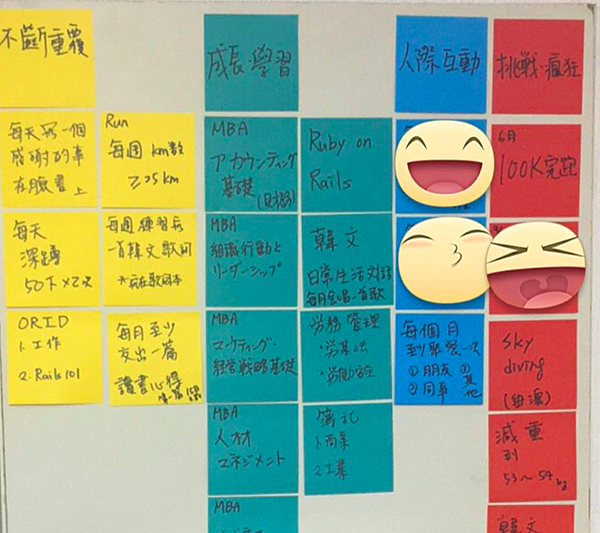 不斷重覆
每天寫一個
感謝的事
在臉書上
Run
每週 km數
≥25km
每天
深蹲
50下×2次
每週練習
一首韓文歌
ORID
1. 工作
2. Rails 101
每月至少
交出一篇
讀書心得
成長·學習
MBA
アカウンティング
基礎
Ruby on
Rails
MBA
組織行動と
リーダーシップ
韓文
日常生活対話
每月會唱一首歌
MBA
マーケティング・
経営戦略基礎
労務管理
・労基法
MBA
人材
マネジメント
簿記
1.商業
2.工業
MBA
人際互動
每個月
到聚餐一次
①朋友 ③其他
②同事
挑戰·瘋狂
6月
100K完跑
Sky
diving
減重
到
53~54kg
韓文